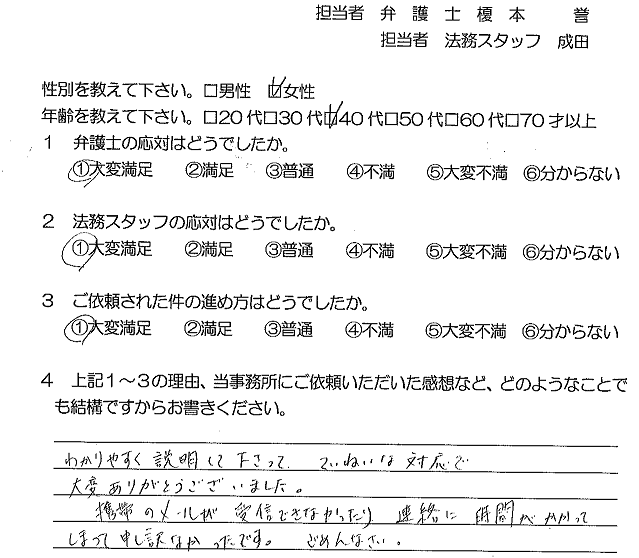 担当者 弁 護 士 榎 本 誉
担当者 法務スタッフ 成田
性別を教えて下さい。□男性 ☑女性
年齢を教えて下さい。□20代□30代☑40代□50代□60代□70才以上
1 弁護士の応対はどうでしたか。
①大変満足 ②満足 ③普通 ④不満 ⑤大変不満 ⑥分からない
2 法務スタッフの応対はどうでしたか。
①大変満足 ②満足 ③普通 ④不満 ⑤大変不満 ⑥分からない
3 ご依頼された件の進め方はどうでしたか。
①大変満足 ②満足 ③普通 ④不満 ⑤大変不満 ⑥分からない
4 上記1~3の理由、当事務所にご依頼いただいた感想など、どのようなことで
も結構ですからお書きください。
わかりやすく説明して下さって、ていねいな対応で
大変ありがとうございました。
携帯のメールが受信できなかったり連絡に時間がかかって
しまって申し訳なかったです。ごめんなさい。